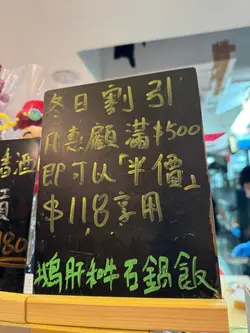 冬日割引
凡惠顧滿$500
即可以「半價」
$118享用
鵝肝和牛石鍋飯
香酒
80